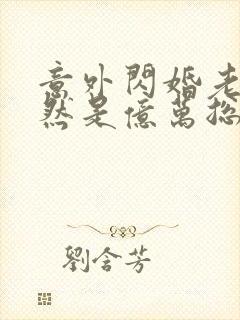 意外閃婚老
然是億萬總
劉含芳